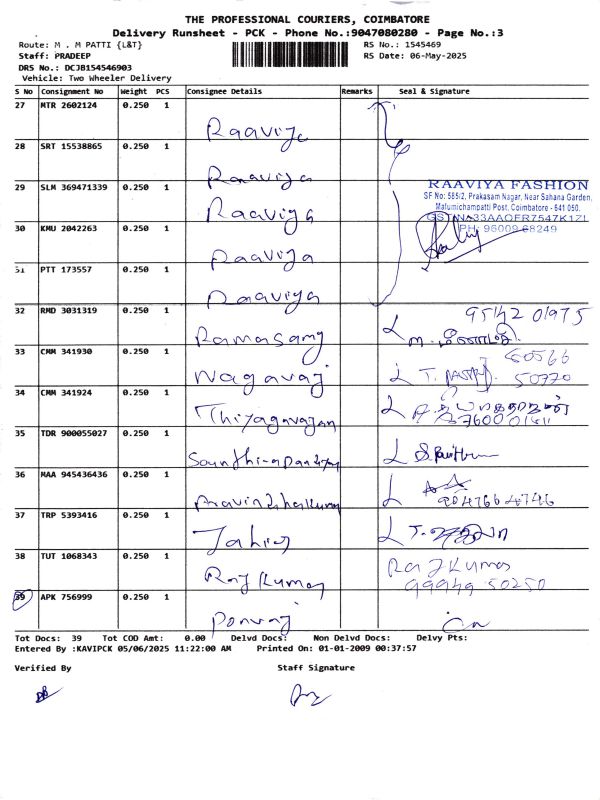 THE PROFESSIONAL COURIERS, COIMBATORE
Delivery Runsheet - PCK - Phone No.:9047080280 - Page No.:3
Route: M . M PATTI {L&T} RS No.: 1545469
Staff: PRADEEP RS Date: 06-May-2025
DRS No.: DCJB154546903
Vehicle: Two Wheeler Delivery
S No Consignment No Weight PCS Consignee Details Remarks Seal & Signature
27 MTR 2602124 0.250 1
Raaviya
28 SRT 15538865 0.250 1
Raaviya
29 SLM 369471339 0.250 1
Raaviya
RAAVIYA FASHION
SF No: 585/2, Prakasam Nagar, Near Sahana Garden,
Malumichampatti Post, Coimbatore - 641 050.
GSTIN:33AAOFR7547K1ZI
PH: 96009 68249
30 KMU 2042263 0.250 1
Raaviya
31 PTT 173557 0.250 1
Raaviya
32 RMD 3031319 0.250 1
Ramasamy
95142 01975
33 CMM 341930 0.250 1
Nagavaj
50770
34 CMM 341924 0.250 1
Thiyagavajan
35 TDR 900055027 0.250 1
36 MAA 945436436 0.250 1
Aravindhakumar
904766 4746
37 TRP 5393416 0.250 1
38 TUT 1068343 0.250 1
Raj Kumar
Raj Kumar
99949 50250
39 APK 756999 0.250 1
Ponvaj
Tot Docs: 39 Tot COD Amt: 0.00 Delvd Docs: Non Delvd Docs: Delvy Pts:
Entered By :KAVIPCK 05/06/2025 11:22:00 AM Printed On: 01-01-2009 00:37:57
Verified By Staff Signature